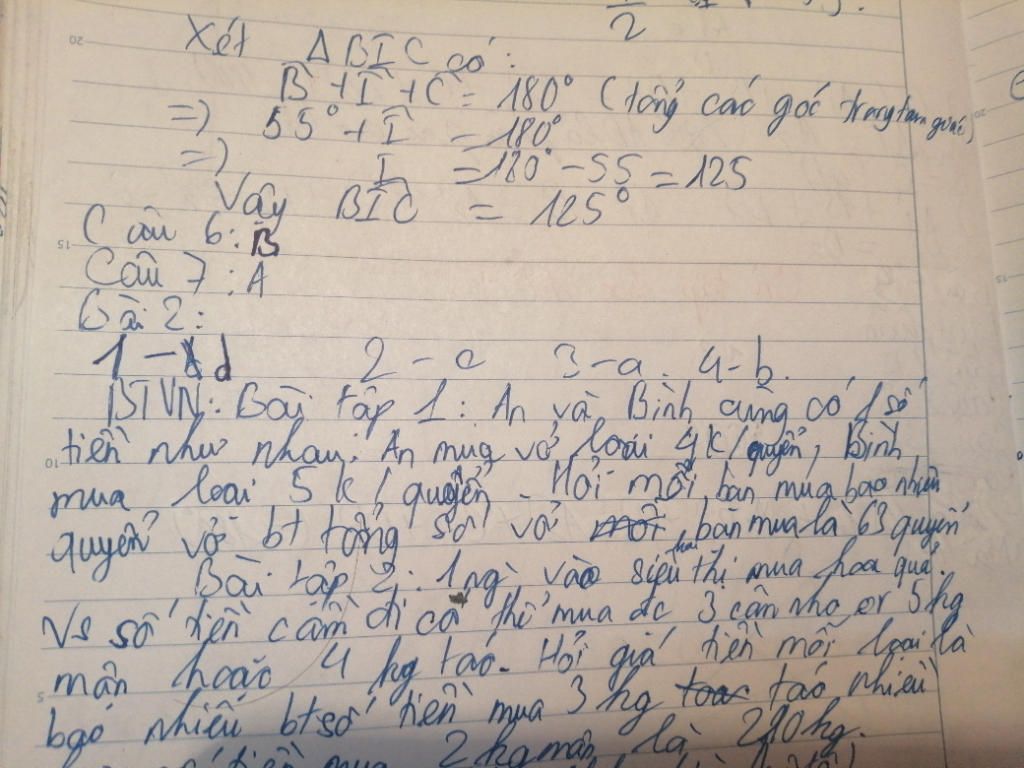 2
Xét ΔBIC có:
B̂ + Î + Ĉ = 180° (tổng các góc trong tam giác)
=> 55° + Î = 180°
=> I = 180° - 55 = 125
Vậy BIC = 125°
Câu 6: B
Câu 7: A
Bài 2:
1 - d 2 - c 3 - a. 4 - b.
BTVN: Bài tập 1: An và Bình cùng có 1 số
tiền như nhau. An mua vở loại 4k/quyển, Bình
mua loại 5k/quyển. Hỏi mỗi bạn mua bao nhiêu
quyển vở bt tổng số vở bạn mua là 63 quyển
Bài tập 2: 1 ng vào siêu thị mua hoa quả.
Vs số tiền cầm đi có thể mua đc 3 cân nho or 5 kg
mận hoặc 4 kg táo. Hỏi giá tiền mỗi loại là
bao nhiêu bt số tiền mua 3 kg táo nhiều
tiền mua 2 kg mận là 210kg.